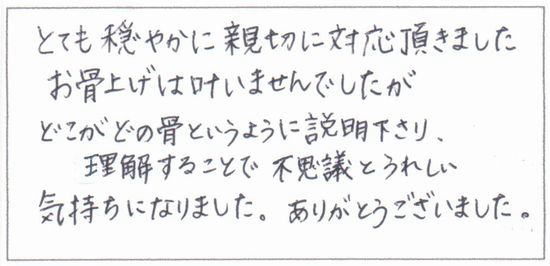 とても穏やかに親切に対応頂きました
お骨上げは叶いませんでしたが
どこがどの骨というように説明下さり、
理解することで不思議とうれしい
気持ちになりました。ありがとうございました。